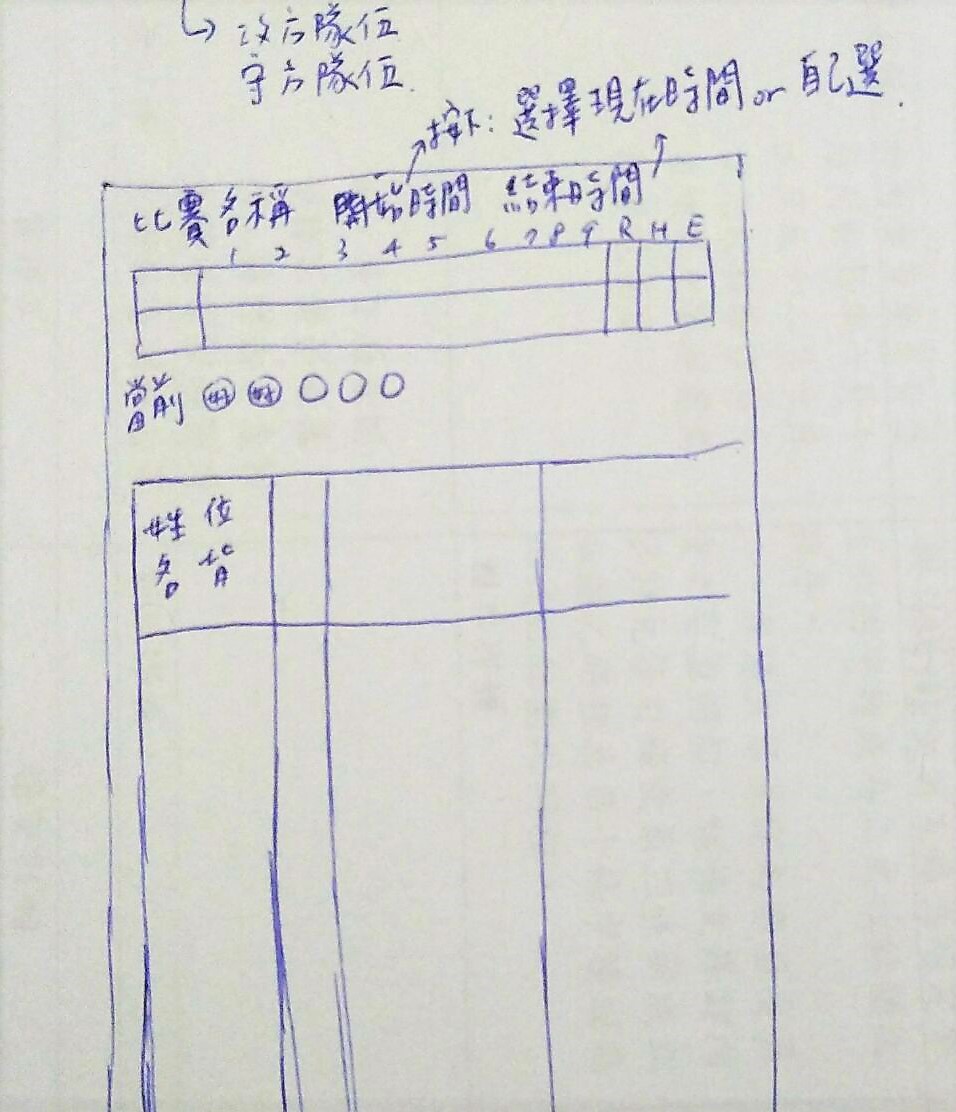 攻方隊伍
守方隊伍.
按下: 選擇現在時間 or 自己選.
比賽名稱 開始時間 結束時間
1 2 3 4 5 6 7 8 9 R H E
當前 好 好
姓 位
名 背